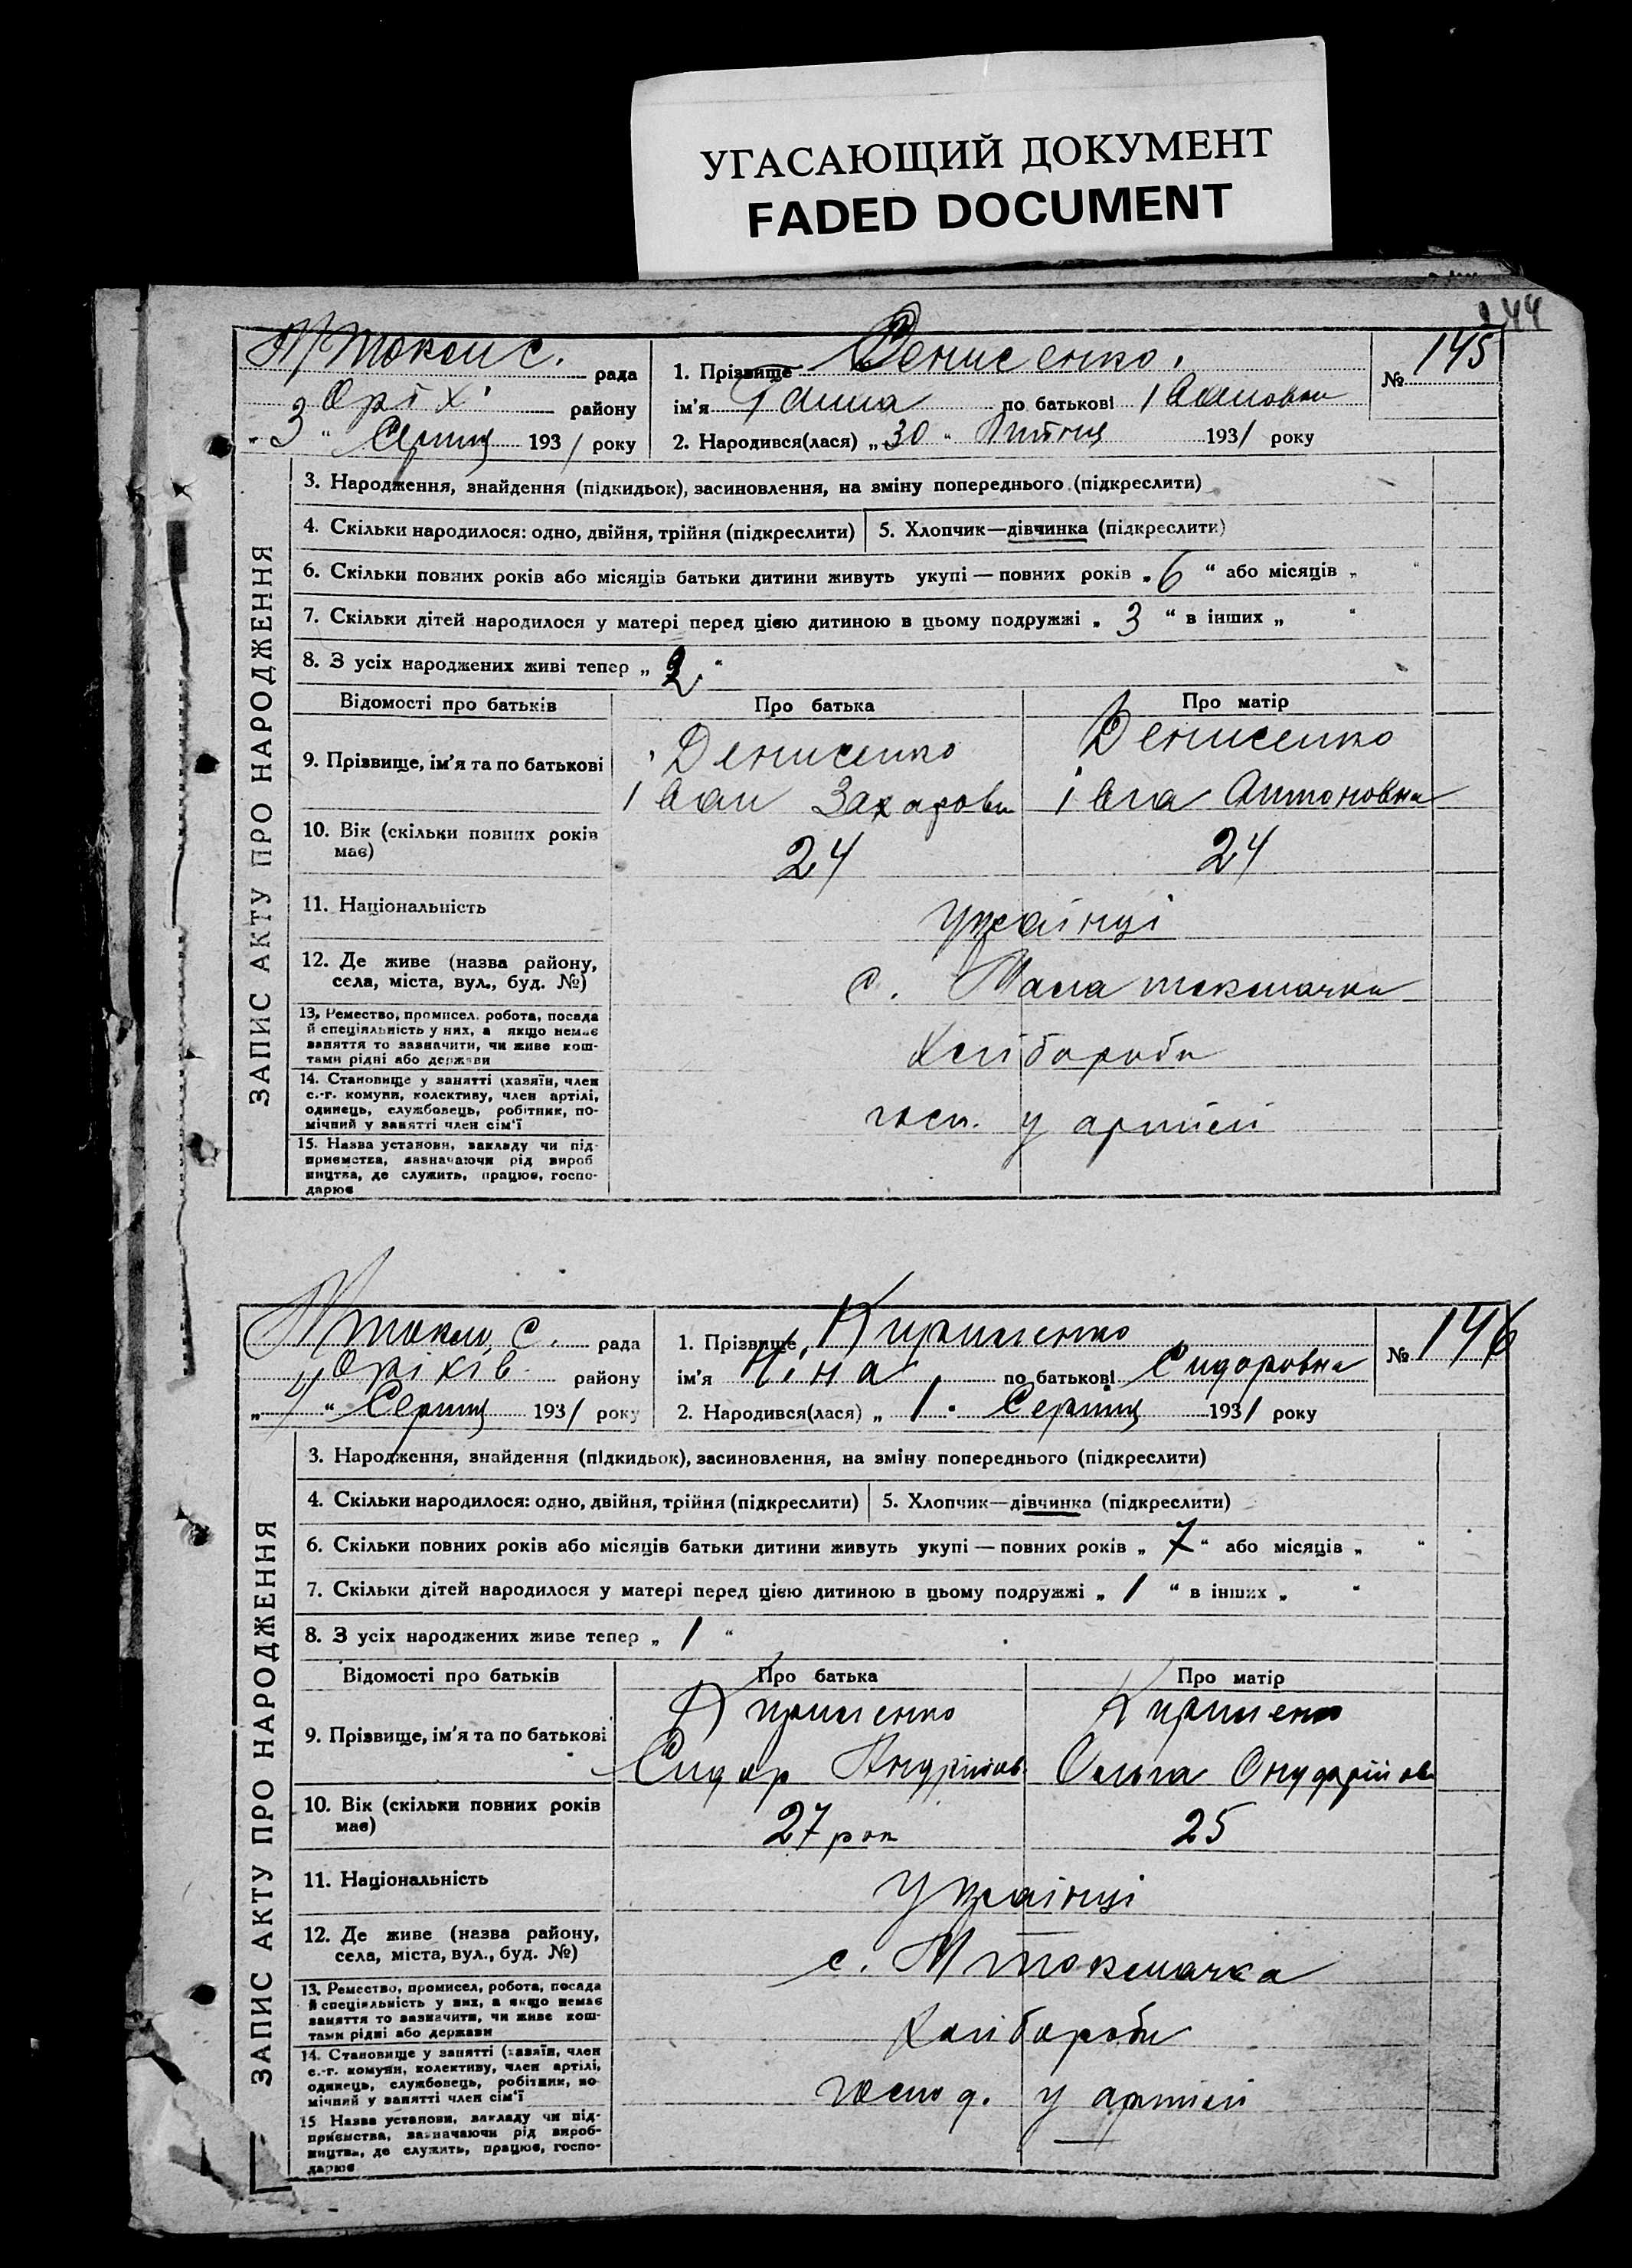 УГАСАЮЩИЙ ДОКУМЕНТ
FADED DOCUMENT
144
ЗАПИС АКТУ ПРО НАРОДЖЕННЯ
Мтокм с. рада
Оріх. району
"3" Серпня 1931 року
1. Прізвище Денисенко.
ім'я Ганна по батькові Івановна
2. Народився(лася) „30" Липня 1931 року
№ 145
3. Народження, знайдення (підкидьок), засиновлення, на зміну попереднього (підкреслити)
4. Скільки народилося: одно, двійня, трійня (підкреслити) 5. Хлопчик—дівчинка (підкреслити)
6. Скільки повних років або місяців батьки дитини живуть укупі — повних років „6" або місяців „ "
7. Скільки дітей народилося у матері перед цією дитиною в цьому подружжі „3" в інших „ "
8. З усіх народжених живі тепер „2"
Відомості про батьків Про батька Про матір
9. Прізвище, ім'я та по батькові
Денисенко Денисенко
Іван Захарови Антоновна
10. Вік (скільки повних років
має)
24 24
11. Національність Українці
12. Де живе (назва району,
села, міста, вул., буд. №)
с. Мала токмачка
13. Ремество, промисел, робота, посада
й спеціяльність у них, а якщо немає
заняття то зазначити, чи живе кош-
тами рідні або держави
Хлібороби
14. Становище у занятті (хазяїн, член
с.-г. комуни, колективу, член артілі,
одинець, службовець, робітник, по-
мічний у занятті член сім'ї
госп. у артілі
15. Назва установи, закладу чи під-
приємства, зазначаючи рід вироб
ництва, де служить, працює, госпо-
дарює
ЗАПИС АКТУ ПРО НАРОДЖЕННЯ
Мтокм, с. рада
Оріхів району
Серпня 1931 року
1. Прізвище Кириленко
ім'я Ніна по батькові Сидоровна
2. Народився(лася) „1" Серпня 1931 року
№ 146
3. Народження, знайдення (підкидьок), засиновлення, на зміну попереднього (підкреслити)
4. Скільки народилося: одно, двійня, трійня (підкреслити) 5. Хлопчик—дівчинка (підкреслити)
6. Скільки повних років або місяців батьки дитини живуть укупі — повних років „7" або місяців „ "
7. Скільки дітей народилося у матері перед цією дитиною в цьому подружжі „1" в інших „ "
8. З усіх народжених живе тепер „1"
Відомості про батьків Про батька Про матір
9. Прізвище, ім'я та по батькові
Кириленко Кириленко
Сидор Андрійов Ольга
10. Вік (скільки повних років
має)
27 рок 25
11. Національність Українці
12. Де живе (назва району,
села, міста, вул., буд. №)
с. Мтокмачка
13. Ремество, промисел, робота, посада
й спеціяльність у них, а якщо немає
заняття то зазначити, чи живе кош-
тами рідні або держави
Хлібороби
14. Становище у занятті (хазяїн, член
с.-г. комуни, колективу, член артілі,
одинець, службовець, робітник, по-
мічний у занятті член сім'ї
господ. у артілі
15 Назва установи, закладу чи під-
приємства, зазначаючи рід вироб-
ництва, де служить, працює, госпо-
дарює